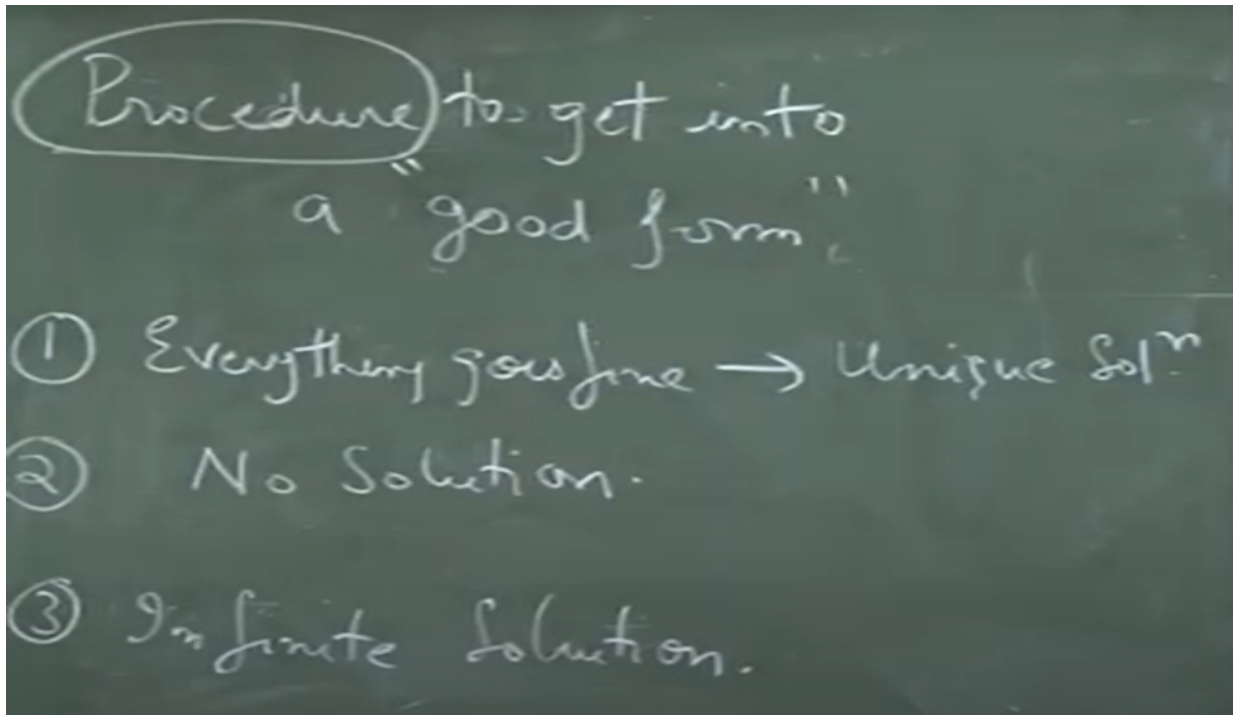 Procedure to get into
a "good form"
① Everything goes fine → Unique Solⁿ.
② No Solution.
③ Infinite Solution.